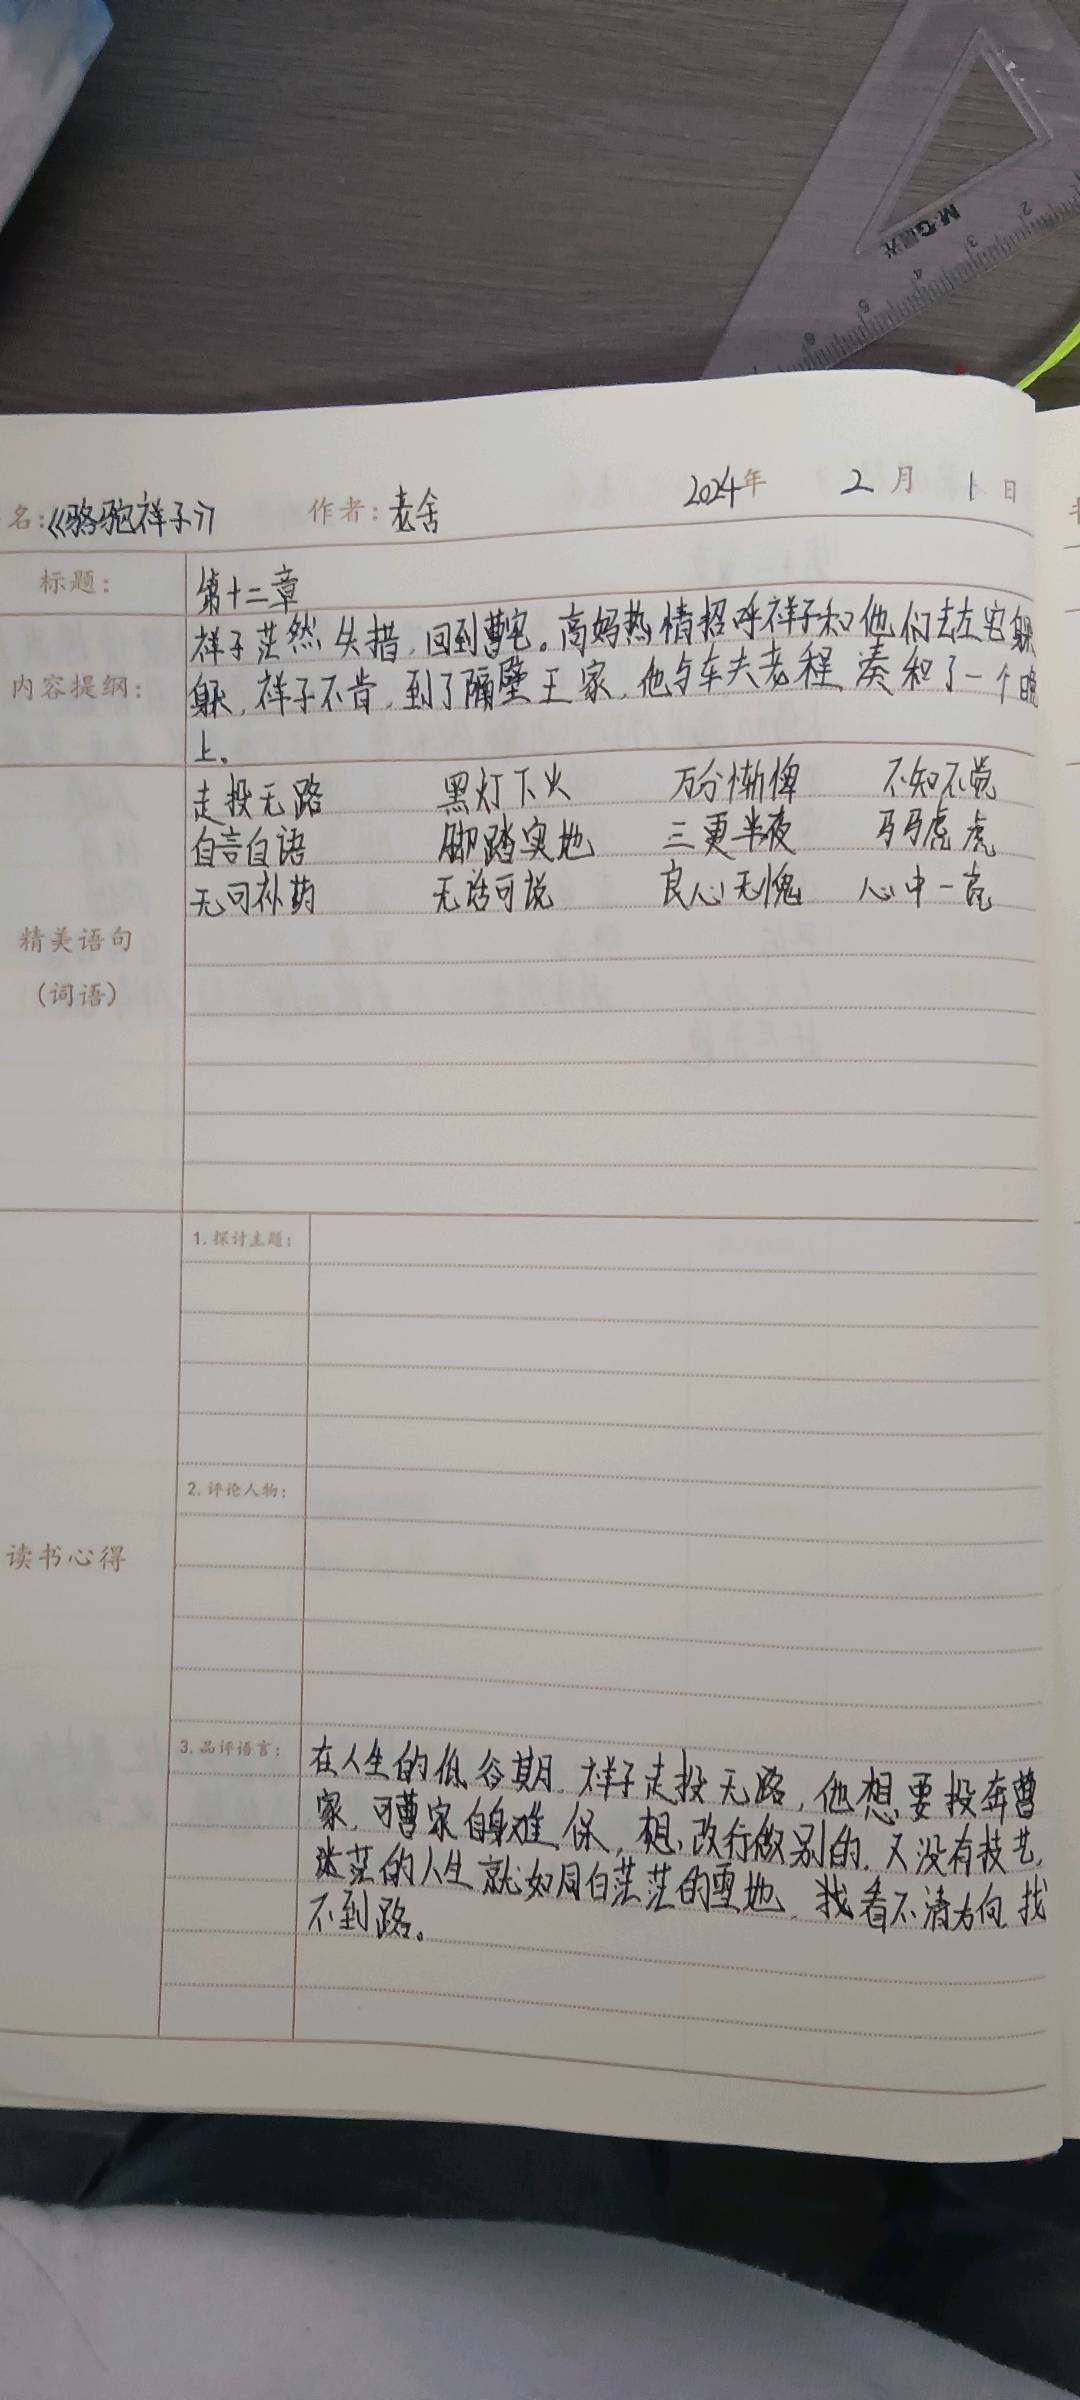 名：《骆驼祥子》 作者：老舍 2024年 2月 1日
标题： 第十二章
祥子茫然失措，回到曹宅。高妈热情招呼祥子和他们去左宅躲
内容提纲： 躲，祥子不肯，到了隔壁王家，他与车夫老程凑和了一个晚
上。
走投无路 黑灯下火 万分惭 不知不觉
自言自语 脚踏实地 三更半夜 马马虎虎
无可补药 无话可说 良心无愧 心中一亮
精美语句
（词语）
1. 探讨主题：
2. 评论人物：
读书心得
3. 品评语言： 在人生的低谷期，祥子走投无路，他想要投奔曹
家，可曹家自身难保，想改行做别的，又没有技艺，
迷茫的人生就如同白茫茫的雪地，找看不清方向找
不到路。
M&G晨光
2
3
4
5
6